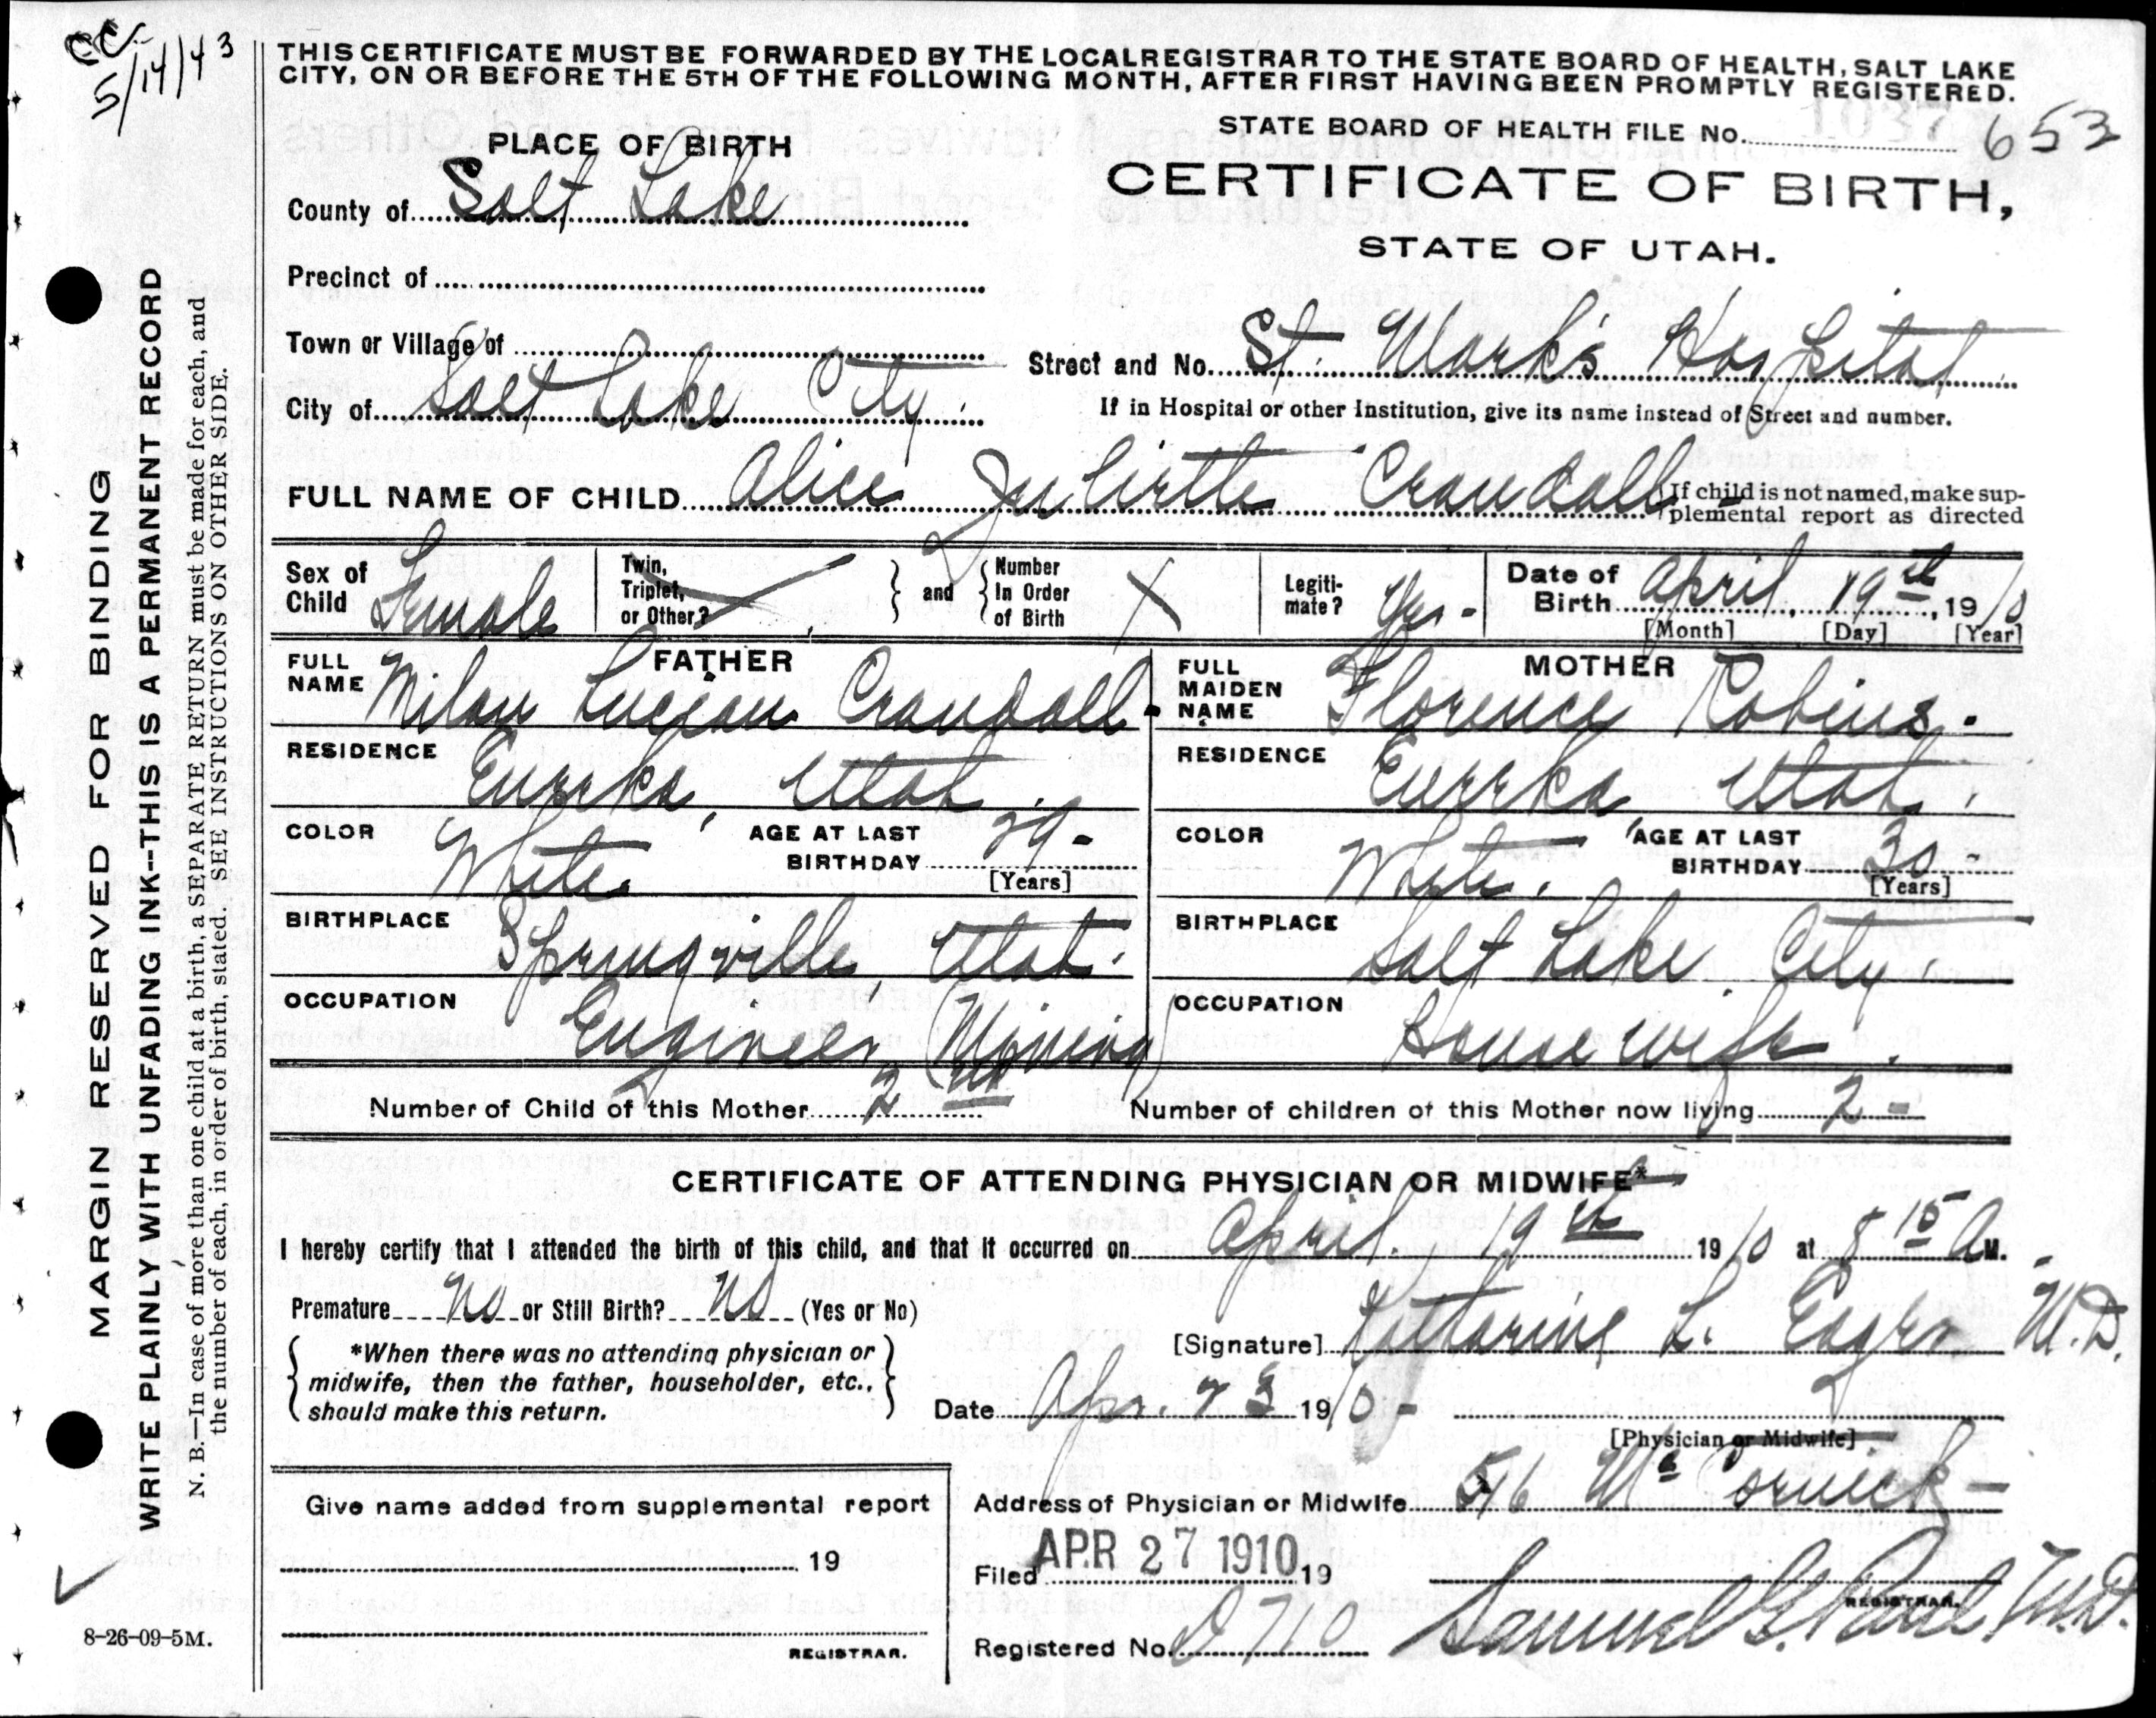 CC
5/14/43
THIS CERTIFICATE MUST BE FORWARDED BY THE LOCAL REGISTRAR TO THE STATE BOARD OF HEALTH, SALT LAKE
CITY, ON OR BEFORE THE 5TH OF THE FOLLOWING MONTH, AFTER FIRST HAVING BEEN PROMPTLY REGISTERED.
STATE BOARD OF HEALTH FILE No. 1037 653
PLACE OF BIRTH
CERTIFICATE OF BIRTH,
STATE OF UTAH.
County of Salt Lake
Precinct of
Town or Village of
Street and No. St. Mark's Hospital
City of Salt Lake City
If in Hospital or other Institution, give its name instead of Street and number.
FULL NAME OF CHILD Alice Juliette Crandall
If child is not named, make sup-
plemental report as directed
Sex of Child Female
Twin, Triplet, or Other?
and
Number In Order of Birth
Legiti-mate? Yes -
Date of Birth April 19th, 1910
[Month] [Day] [Year]
FATHER
FULL NAME Milan Lucian Crandall
RESIDENCE Eureka, Utah
COLOR White
AGE AT LAST BIRTHDAY 29 -
[Years]
BIRTHPLACE Springville, Utah.
OCCUPATION Engineer (Mining)
MOTHER
FULL MAIDEN NAME Florence Robins.
RESIDENCE Eureka, Utah.
COLOR White.
AGE AT LAST BIRTHDAY 30 -
[Years]
BIRTHPLACE Salt Lake City.
OCCUPATION Housewife.
Number of Child of this Mother 2nd
Number of children of this Mother now living 2 -
CERTIFICATE OF ATTENDING PHYSICIAN OR MIDWIFE*
I hereby certify that I attended the birth of this child, and that it occurred on April. 19th 1910 at 8 15 A M.
Premature No or Still Birth? No (Yes or No)
[Signature] Katharine L. Eager M.D.
*When there was no attending physician or
midwife, then the father, householder, etc.,
should make this return.
Date Apr. 23 1910 -
[Physician or Midwife]
Address of Physician or Midwife 516 McCornick -
Give name added from supplemental report
19
REGISTRAR.
Filed APR 27 1910 19
Registered No. D 710
Samuel G. Paul, M.D.
REGISTRAR.
8-26-09-5M.
MARGIN RESERVED FOR BINDING
WRITE PLAINLY WITH UNFADING INK--THIS IS A PERMANENT RECORD
N. B.—In case of more than one child at a birth, a SEPARATE RETURN must be made for each, and
the number of each, in order of birth, stated. SEE INSTRUCTIONS ON OTHER SIDE.